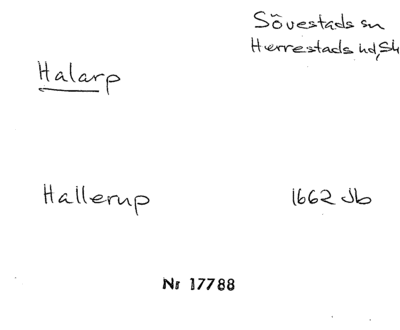 Sövestads sn
Herrestads hd, Sk
Halarp
Hallerup 1662 Jb
Nr 17788